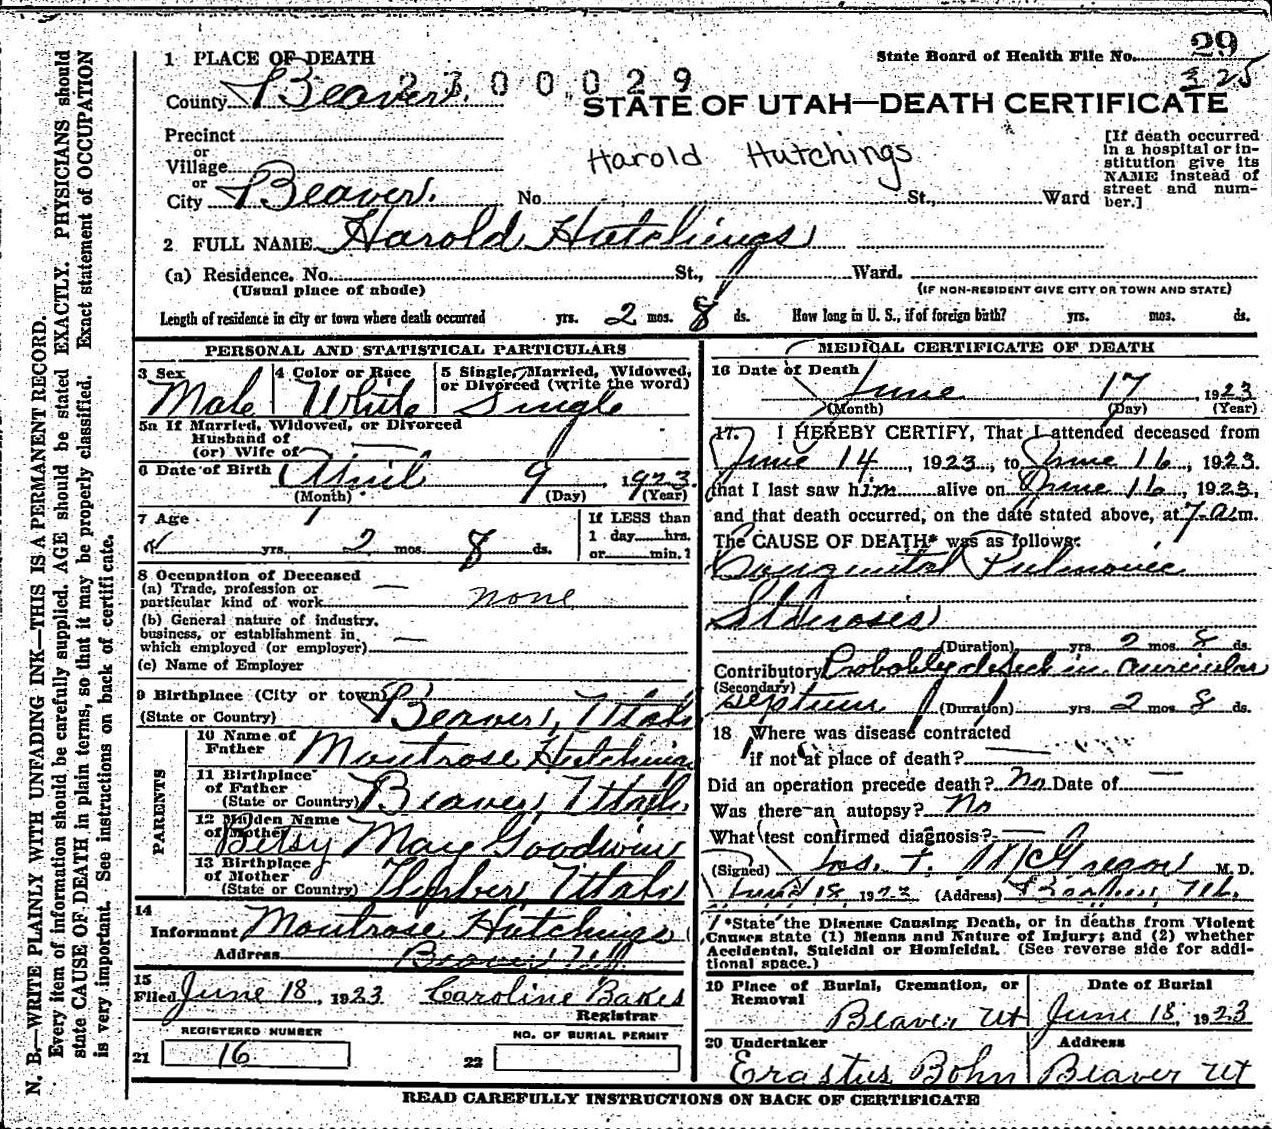 29
State Board of Health File No.
325
1 PLACE OF DEATH
2300029
County Beaver.
STATE OF UTAH—DEATH CERTIFICATE
Precinct
or
Village
or
City Beaver. No. St., Ward
Harold Hutchings
[If death occurred in a hospital or in-
stitution give its
NAME instead of
street and num-
ber.]
2 FULL NAME Harold Hutchings
(a) Residence. No. St., Ward.
(Usual place of abode)
(IF NON-RESIDENT GIVE CITY OR TOWN AND STATE)
Length of residence in city or town where death occurred yrs. 2 mos. 8 ds. How long in U. S., if of foreign birth? yrs. mos. ds.
PERSONAL AND STATISTICAL PARTICULARS
3 Sex
Male
4 Color or Race
White
5 Single, Married, Widowed,
or Divorced (write the word)
Single
5a If Married, Widowed, or Divorced
Husband of
(or) Wife of
6 Date of Birth April 9, 1923
(Month) (Day) (Year)
7 Age
yrs. 2 mos. 8 ds.
If LESS than
1 day hrs.
or min.?
8 Occupation of Deceased
(a) Trade, profession or
particular kind of work none
(b) General nature of industry,
business, or establishment in
which employed (or employer)
(c) Name of Employer
9 Birthplace (City or town)
(State or Country) Beaver, Utah
PARENTS
10 Name of
Father Montrose Hutchings
11 Birthplace
of Father
(State or Country) Beaver, Utah
12 Maiden Name
of Mother Betsy May Goodwin
13 Birthplace
of Mother
(State or Country) Heber, Utah
14
Informant Montrose Hutchings
Address Beaver Ut.
15
Filed June 18, 1923 Caroline Bakes
Registrar
REGISTERED NUMBER
21 16
NO. OF BURIAL PERMIT
22
MEDICAL CERTIFICATE OF DEATH
16 Date of Death
June 17, 1923
(Month) (Day) (Year)
17. I HEREBY CERTIFY, That I attended deceased from
June 14, 1923, to June 16, 1923.
that I last saw him alive on June 16, 1923,
and that death occurred, on the date stated above, at 7 a.m.
The CAUSE OF DEATH* was as follows:
Congenital Pulmonic
Stenoses
(Duration) yrs. 2 mos. 8 ds.
Contributory Probably defect in auricular
(Secondary)
septum (Duration) yrs. 2 mos. 8 ds.
18 Where was disease contracted
if not at place of death?
Did an operation precede death? No Date of
Was there an autopsy? No
What test confirmed diagnosis?
(Signed) Jas. F. McGregor M. D.
June 18 1923 (Address) Ut.
*State the Disease Causing Death, or in deaths from Violent
Causes state (1) Means and Nature of Injury; and (2) whether
Accidental, Suicidal or Homicidal. (See reverse side for addi-
tional space.)
19 Place of Burial, Cremation, or
Removal
Beaver Ut
Date of Burial
June 18, 1923
20 Undertaker
Erastus Bohn
Address
Beaver Ut
READ CAREFULLY INSTRUCTIONS ON BACK OF CERTIFICATE
N. B.—WRITE PLAINLY WITH UNFADING INK—THIS IS A PERMANENT RECORD.
Every item of information should be carefully supplied. AGE should be stated EXACTLY. PHYSICIANS should
state CAUSE OF DEATH in plain terms, so that it may be properly classified. Exact statement of OCCUPATION
is very important. See instructions on back of certificate.